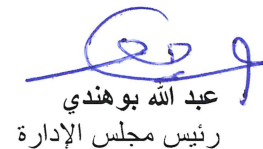 عبد الله بوهندي
رئيس مجلس الإدارة